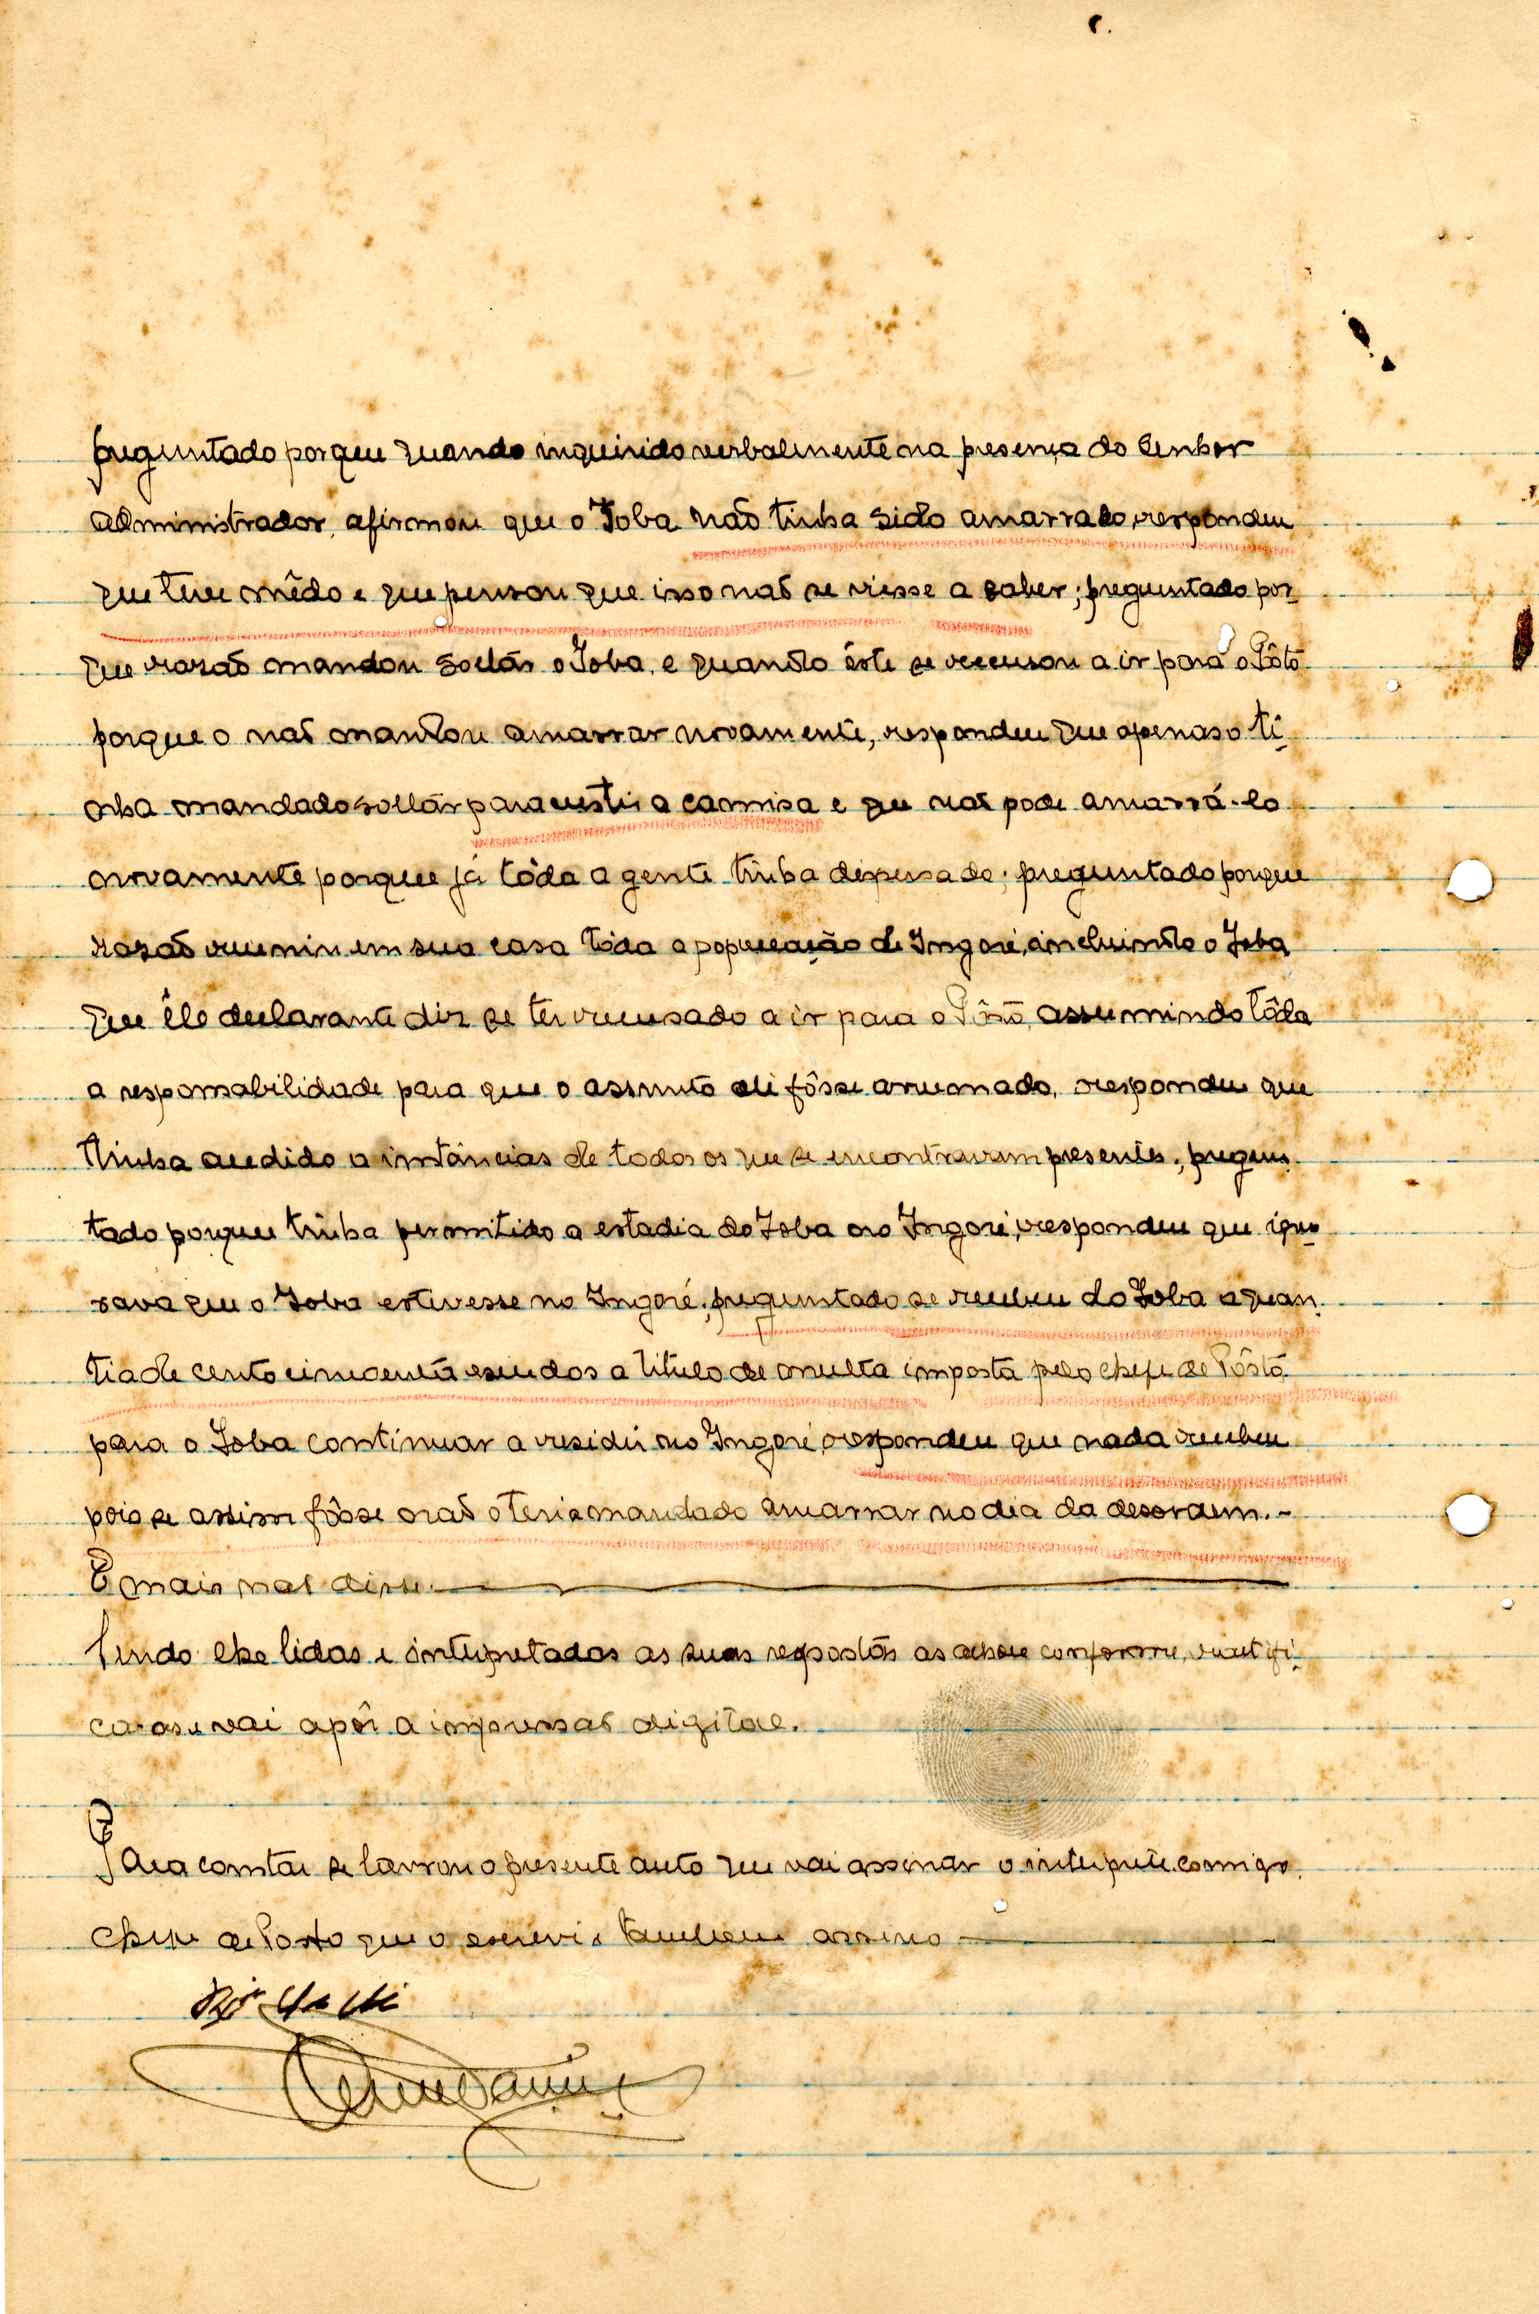 preguntado porque quando inquirido verbalmente na presença do Senhor
Administrador, afirmou que o Joba não tinha sido amarrado, respondeu
que teve mêdo e que pensou que isso não se viesse a saber; preguntado por-
que razão mandou soltár o Joba, e quando êste se recusou a ir para o Pôsto
porque o não mandou amarrar novamente, respondeu que apenas o ti-
nha mandado soltár para vestir a camisa e que não pode amarrá-lo
novamente porque já tôda a gente tinha dispersado; preguntado porque
razão reuniu em sua casa tôda a população de Ingoré, incluindo o Joba
que êle declarante diz se ter recusado a ir para o Pôsto, assumindo tôda
a responsabilidade para que o assunto ali fôsse arrumado, respondeu que
tinha acedido a instâncias de todos os que se encontravam presentes; pregun-
tado porque tinha permitido a estadia do Joba no Ingoré, respondeu que igno-
rava que o Joba estivesse no Ingoré; preguntado se recebeu do Joba a quan-
tia de cento cincoenta escudos a titulo de multa imposta pelo chefe de Pôsto
para o Joba continuar a residir no Ingoré, respondeu que nada recebeu
pois se assim fôsse não o teria mandado amarrar no dia da desordem.-
E mais não disse.
Sendo lhe lidas e interpretadas as suas respostas as achou conforme, ractifi-
ca-as e vai apôr a impressão digital.
Para constar se lavrou o presente auto que vai assinar o intérprete comigo
chefe de Posto que o escrevi e tambem assino